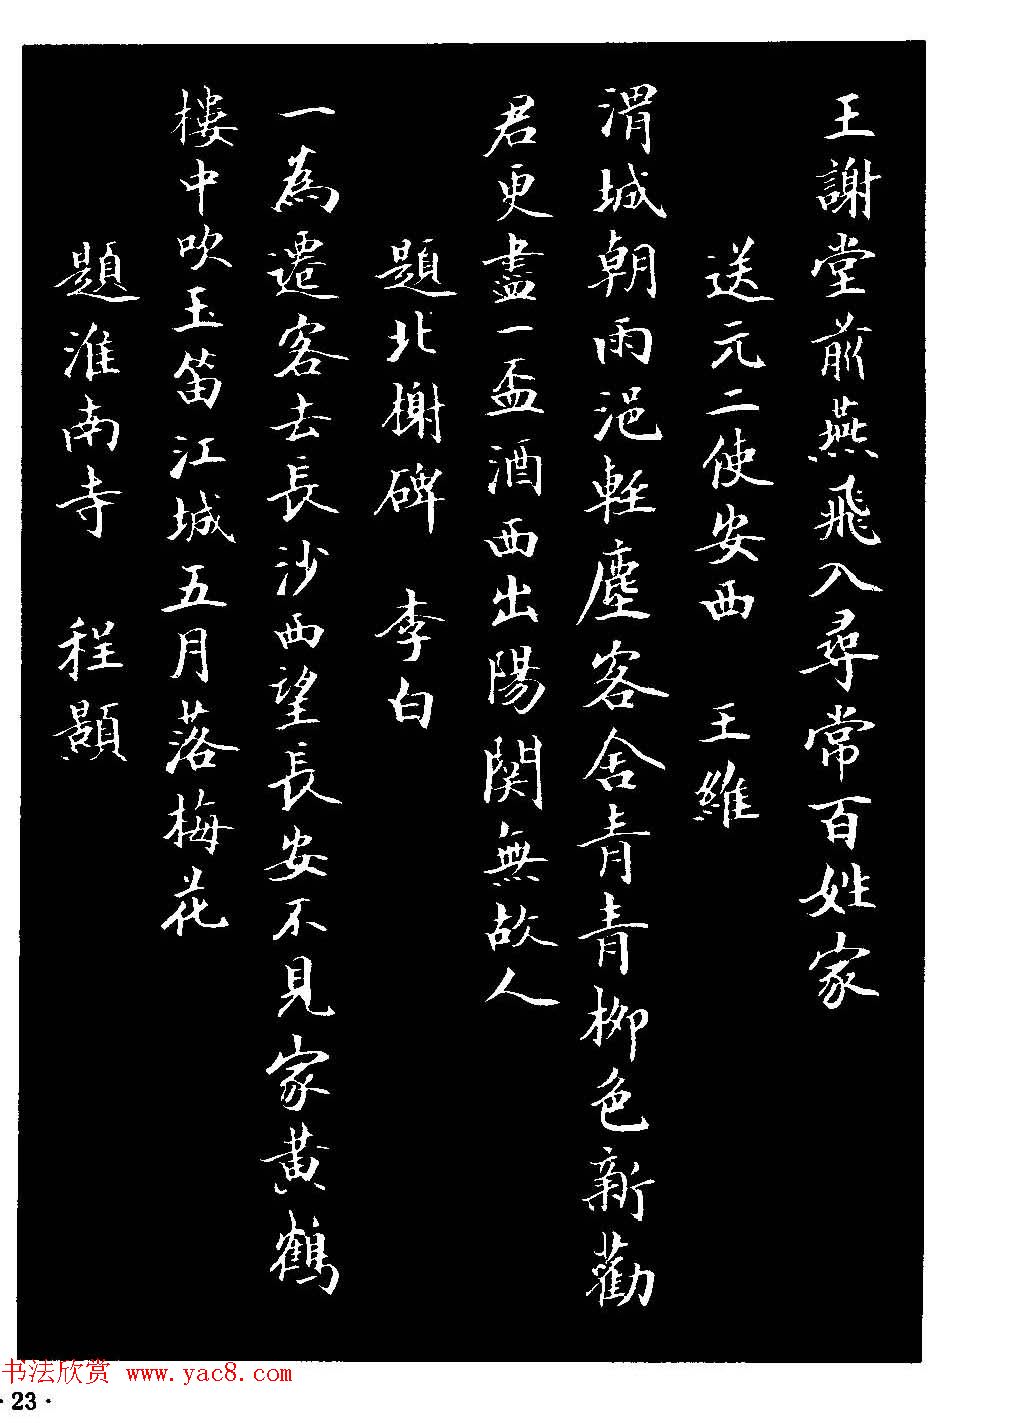 王謝堂前燕飛入尋常百姓家
送元二使安西 王維
渭城朝雨浥輕塵客舍青青柳色新勸
君更盡一盃酒西出陽関無故人
題北榭碑 李白
一為遷客去長沙西望長安不見家黄鶴
樓中吹玉笛江城五月落梅花
題淮南寺 程顥
书法欣赏 www.yac8.com
·23·